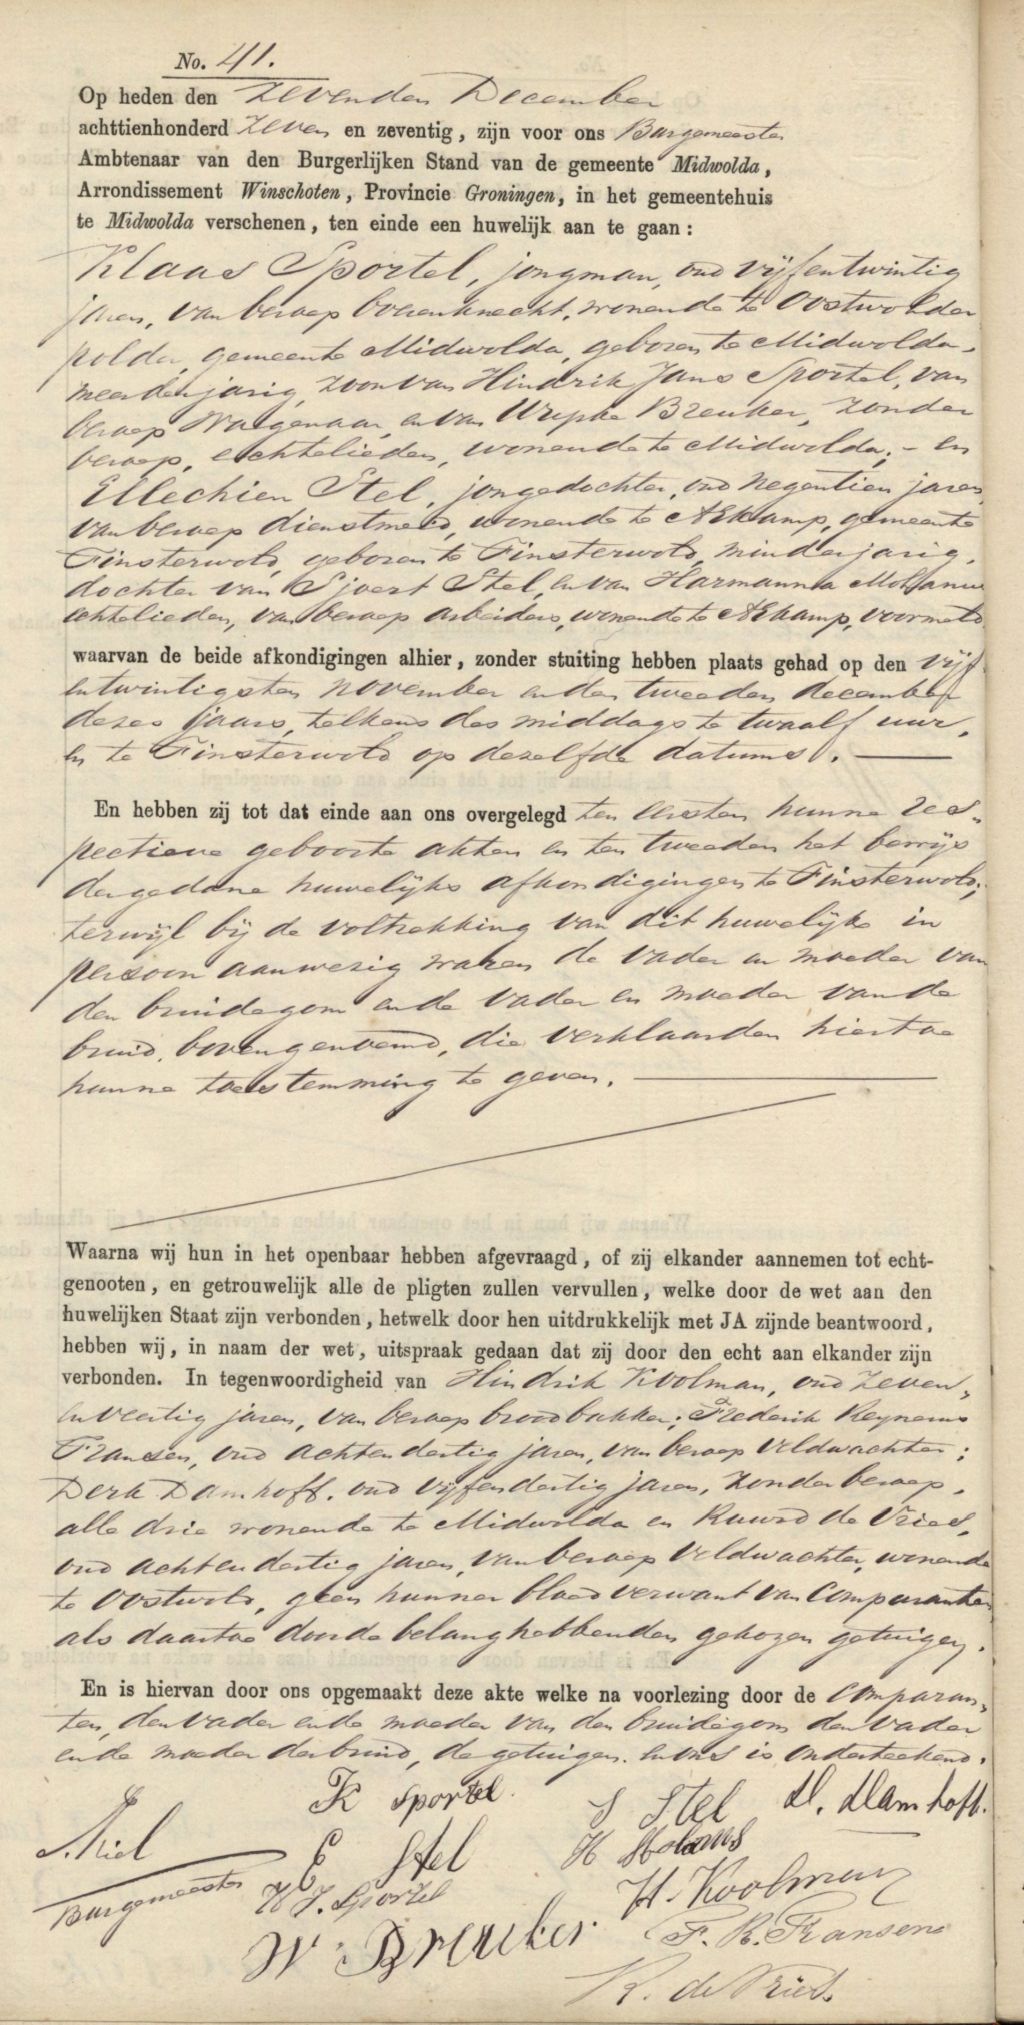 No. 41.
Op heden den zevenden December
achttienhonderd zeven en zeventig, zijn voor ons Burgemeester
Ambtenaar van den Burgerlijken Stand van de gemeente Midwolda,
Arrondissement Winschoten, Provincie Groningen, in het gemeentehuis
te Midwolda verschenen, ten einde een huwelijk aan te gaan:
Klaas Sportel, jongman, oud vijfentwintig
jaren, van beroep boerenknecht, wonende te Oostwolder
polder, gemeente Midwolda, geboren te Midwolda,
meerderjarig, zoon van Hindrik Jans Sportel, van
beroep Wagenaar, en van Wupke Breuker, zonder
beroep, echtelieden, wonende te Midwolda; – en
Ellechien Stel, jongedochter, oud negentien jaren,
van beroep dienstmeid, wonende te Ekamp, gemeente
Finsterwold, geboren te Finsterwold, minderjarig,
dochter van Sjoert Stel, en van Harmanna Molanus
echtelieden, van beroep arbeiders, wonende te Ekamp, voormeld
waarvan de beide afkondigingen alhier, zonder stuiting hebben plaats gehad op den vijf
entwintigsten november en den tweeden december
dezes jaars, telkens des middags te twaalf uur,
en te Finsterwold op dezelfde datums.
En hebben zij tot dat einde aan ons overgelegd ten eersten hunne res-
pectieve geboorte akten en ten tweeden het bewijs
der gedane huwelijks afkondigingen te Finsterwold;
terwijl bij de voltrekking van dit huwelijke in
persoon aanwezig waren de vader en moeder van
den bruidegom en de vader en moeder van de
bruid, bovengenoemd, die verklaarden hiertoe
hunne toestemming te geven.
Waarna wij hun in het openbaar hebben afgevraagd, of zij elkander aannemen tot echt-
genooten, en getrouwelijk alle de pligten zullen vervullen, welke door de wet aan den
huwelijken Staat zijn verbonden, hetwelk door hen uitdrukkelijk met JA zijnde beantwoord,
hebben wij, in naam der wet, uitspraak gedaan dat zij door den echt aan elkander zijn
verbonden. In tegenwoordigheid van Hindrik Koolman, oud zeven-
enveertig jaren, van beroep broodbakker; Frederik Reynerus
Fransen, oud achtendertig jaren, van beroep veldwachter;
Derk Damhoff, oud vijfendertig jaren, zonder beroep,
alle drie wonende te Midwolda en Ruurd de Vries,
oud achtendertig jaren, van beroep veldwachter, wonende
te Oostwold, geen hunner bloedverwant van Comparanten
als daartoe door de belanghebbenden gekozen getuigen.
En is hiervan door ons opgemaakt deze akte welke na voorlezing door de Comparan-
ten, den vader en de moeder van den bruidegom den vader
en de moeder der bruid, de getuigen en ons is onderteekend.
K Sportel S Stel D. Damhoff.
E Stel H Molanus
Burgemeester H. J. Sportel H. Koolman
W Breuker F. R. Fransen
R. de Vries